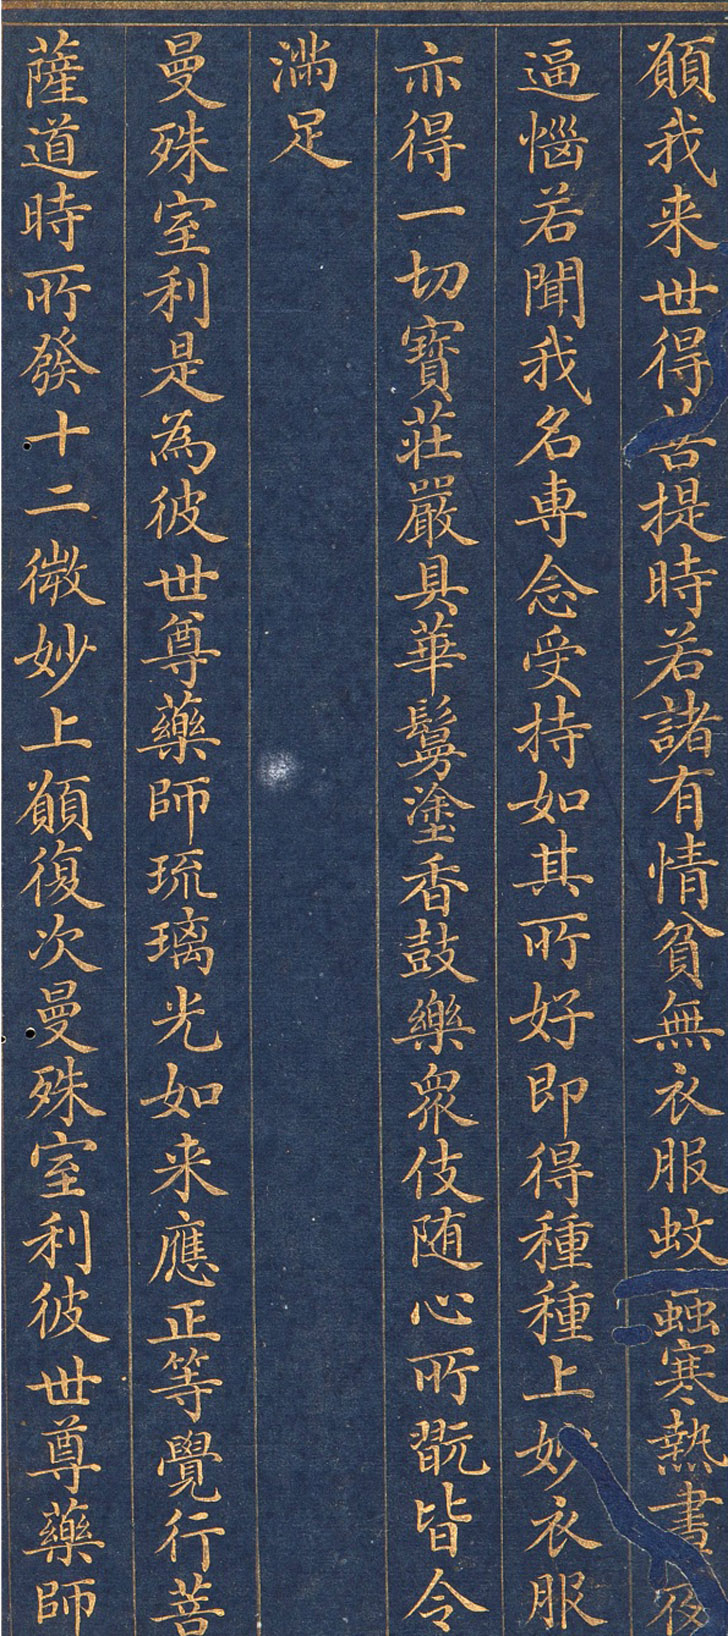 願我来世得菩提時若諸有情貧無衣服蚊蝱寒熱晝夜
逼惱若聞我名専念受持如其所好即得種種上妙衣服
亦得一切寳莊嚴具華鬘塗香鼓樂衆伎随心所翫皆令
滿足
曼殊室利是為彼世尊藥師琉璃光如来應正等覺行菩
薩道時所發十二微妙上願復次曼殊室利彼世尊藥師